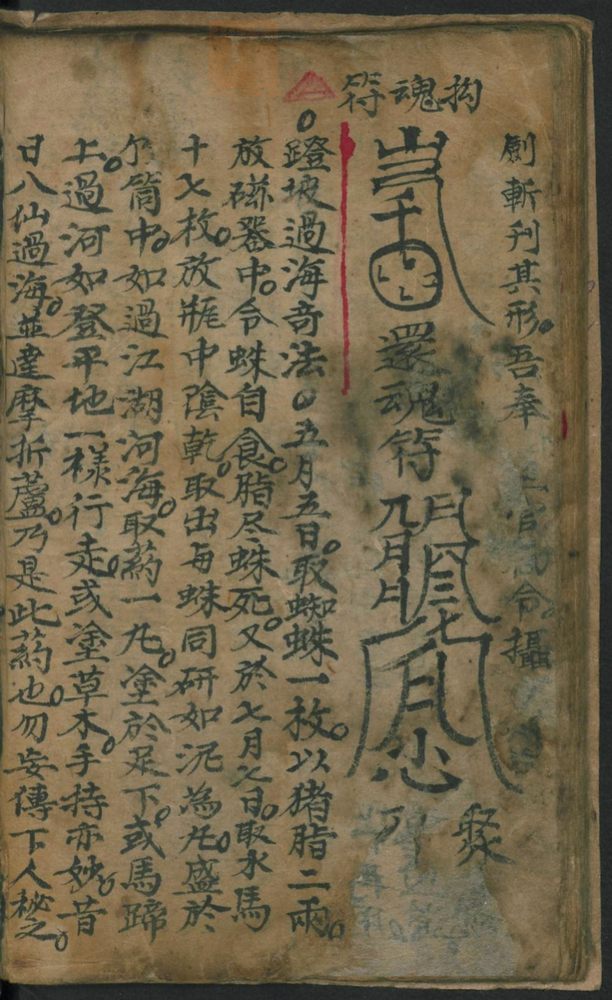 劍斬列其形。吾奉 令。攝
拘魂符
還魂符
聚
蹬坡過海奇法。五月五日。取蜘蛛一枚。以猪脂二兩。
放磁器中。令蛛自食。脂尽蛛死。又於七月七日。取水馬
十七枚。放瓶中陰乾。取出与蛛同研如泥為丸。盛於
竹筒中。如過江湖河海。取葯一丸。塗於足下。或馬蹄
上。過河如登平地一樣行走。或塗草木。手持亦妙。昔
日八仙過海。並達摩折蘆。乃是此葯也。勿妄傳下人秘之。